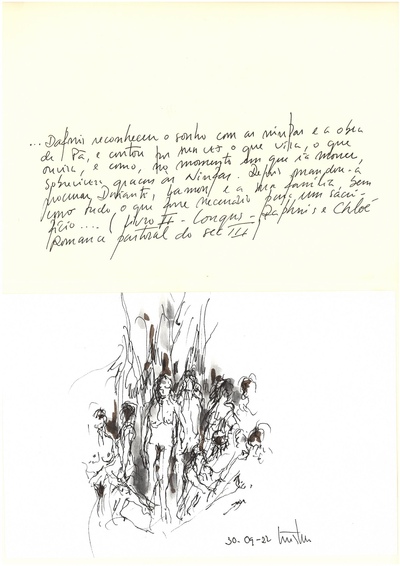 ... Dafnis reconheceu o sonho com as ninfas e a obra
de Pã, e contou por sua vez o que vira, o que
ouvira, e como, no momento em que ia morrer,
sobreviveu graças às Ninfas. Depois mandou-a
procurar Driante, Lamon, e a sua família, bem
como tudo o que fore necessário para um sacri-
fício .... (Livro II - Longus - Daphnis e Chloé
Romance pastoral do sec III
30-09-22